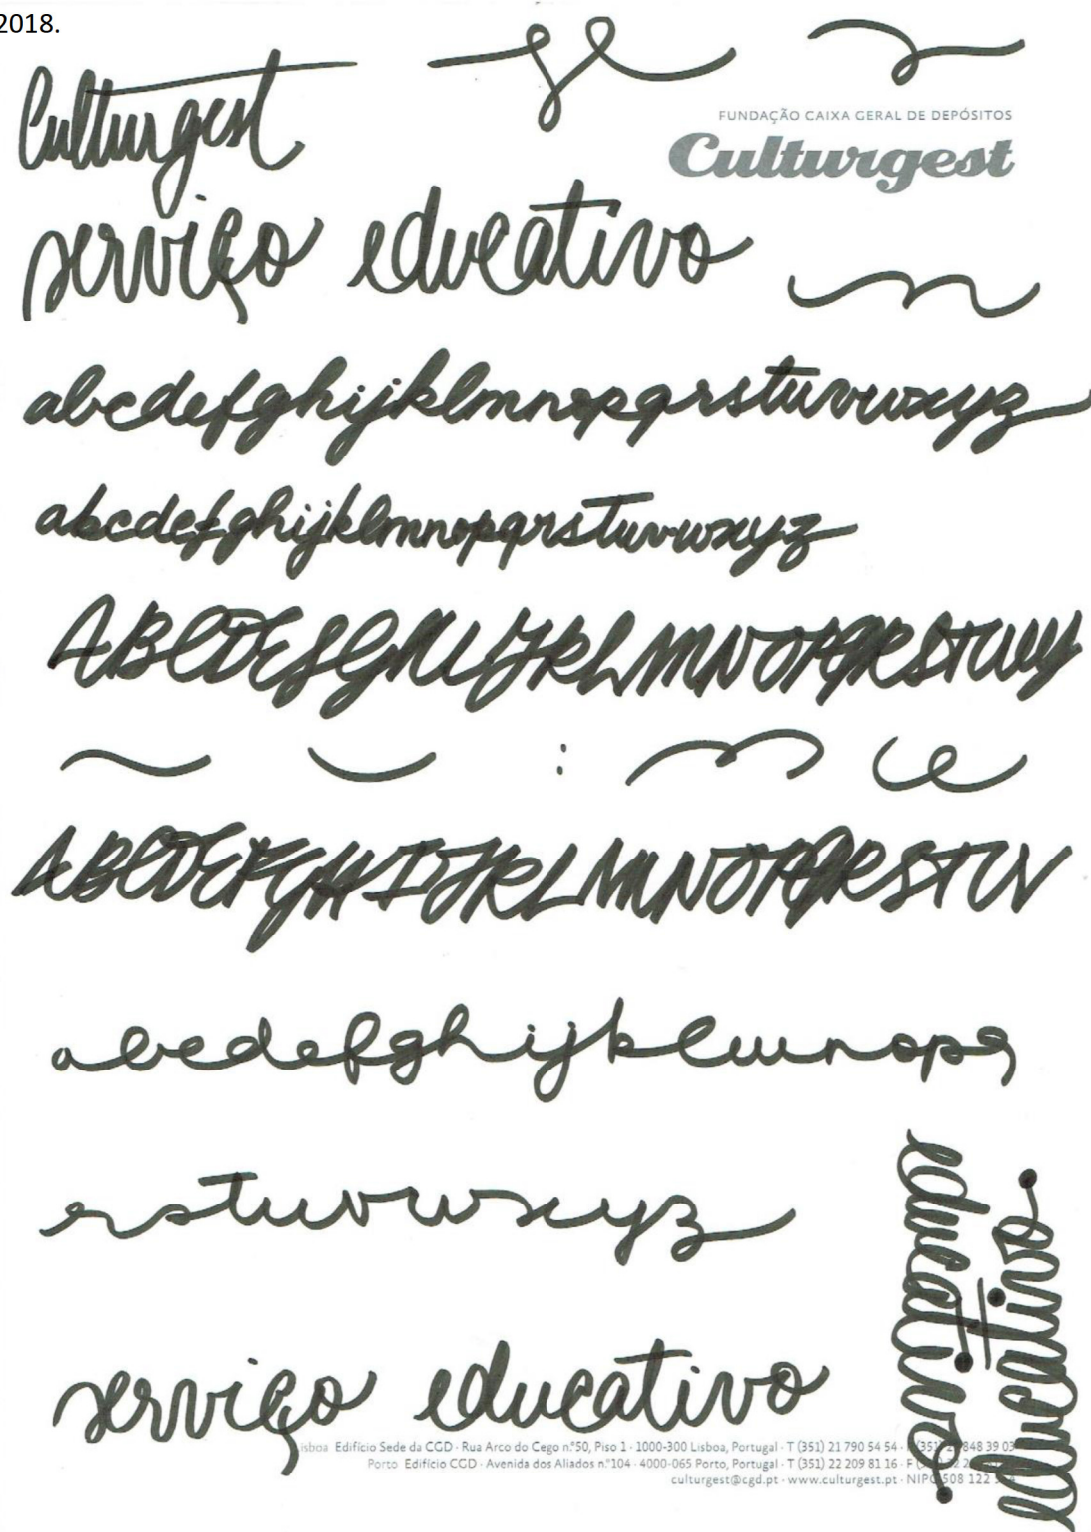 2018.
Culturgest
FUNDAÇÃO CAIXA GERAL DE DEPÓSITOS
Culturgest
serviço educativo
abcdefghijklmnopqrstuvwxyz
abcdefghijklmnopqrstuvwxyz
ABCDEFGHIJKLMNOPQRSTUV
:
ABCDEFGHIJKLMNOPQRSTUV
abcdefghijklmnopq
rstuvwxyz
educativo
educativo
serviço educativo
Lisboa Edifício Sede da CGD · Rua Arco do Cego n.º50, Piso 1 · 1000-300 Lisboa, Portugal · T (351) 21 790 54 54 · 848 39 03
Porto Edifício CGD · Avenida dos Aliados n.º104 · 4000-065 Porto, Portugal · T (351) 22 209 81 16 · F
culturgest@cgd.pt · www.culturgest.pt · NIPC 508 122